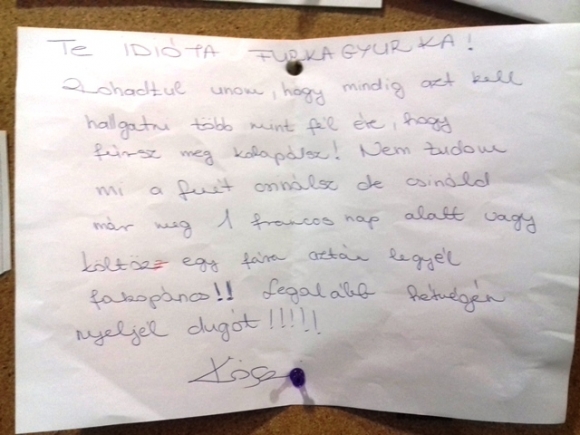 TE IDIÓTA FURKAGYURKA!
Rohadtul unom, hogy mindig azt kell
hallgatni több mint fél éve, hogy
fúrsz meg kalapálsz! Nem tudom
mi a francot csinálsz de csináld
már meg 1 francos nap alatt vagy
költözz egy fára aztán legyél
fakopáncs!! Legalább hétvégén
nyeljél dugót!!!!!